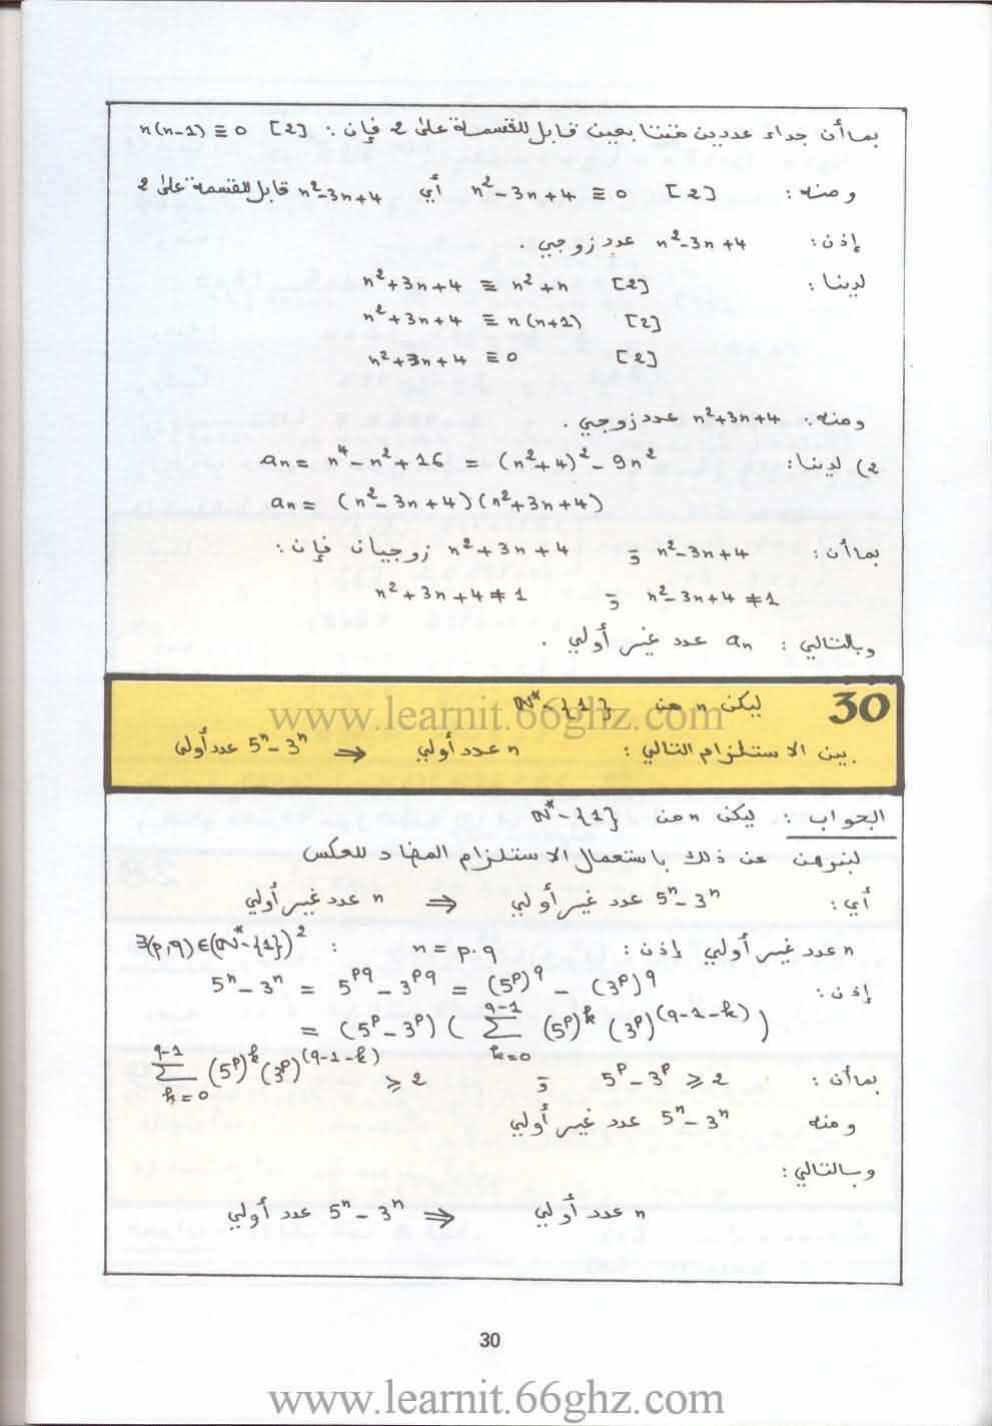 بما أن جداء عددين متتابعين قابل للقسمة على 2 فإن : n(n-1) ≡ 0 [2]
و منه : n²-3n+4 ≡ 0 [2] أي n²-3n+4 قابل للقسمة على 2
إذن : n²-3n+4 عدد زوجي .
لدينا : n²+3n+4 ≡ n²+n [2]
n²+3n+4 ≡ n(n+1) [2]
n²+3n+4 ≡ 0 [2]
ومنه : n²+3n+4 عدد زوجي .
2) لدينا : an = n⁴-n²+16 = (n²+4)²-9n²
an = (n²-3n+4)(n²+3n+4)
بما أن : n²-3n+4 و n²+3n+4 زوجيان فإن :
n²-3n+4 ≠ 1 و n²+3n+4 ≠ 1
وبالتالي : an عدد غير أولي .
30 ليكن n من N*-{1}
www.learnit.66ghz.com
بين الاستلزام التالي : n عدد أولي ⇐ 5ⁿ-3ⁿ عدد أولي
الجواب : ليكن n من N*-{1}
لنبرهن عن ذلك باستعمال الاستلزام المضاد للعكس
أي : 5ⁿ-3ⁿ عدد غير أولي ⇒ n عدد غير أولي
n عدد غير أولي إذن : ∃(p,q)∈(N*-{1})² : n = p.q
إذن : 5ⁿ-3ⁿ = 5^pq - 3^pq = (5^p)^q - (3^p)^q
= (5^p-3^p)( Σ_{k=0}^{q-1} (5^p)^k (3^p)^(q-1-k) )
بما أن : 5^p-3^p ≥ 2 و Σ_{k=0}^{q-1} (5^p)^k (3^p)^(q-1-k) ≥ 2
ومنه 5ⁿ-3ⁿ عدد غير أولي
وبالتالي :
n عدد أولي ⇒ 5ⁿ-3ⁿ عدد أولي
30
www.learnit.66ghz.com